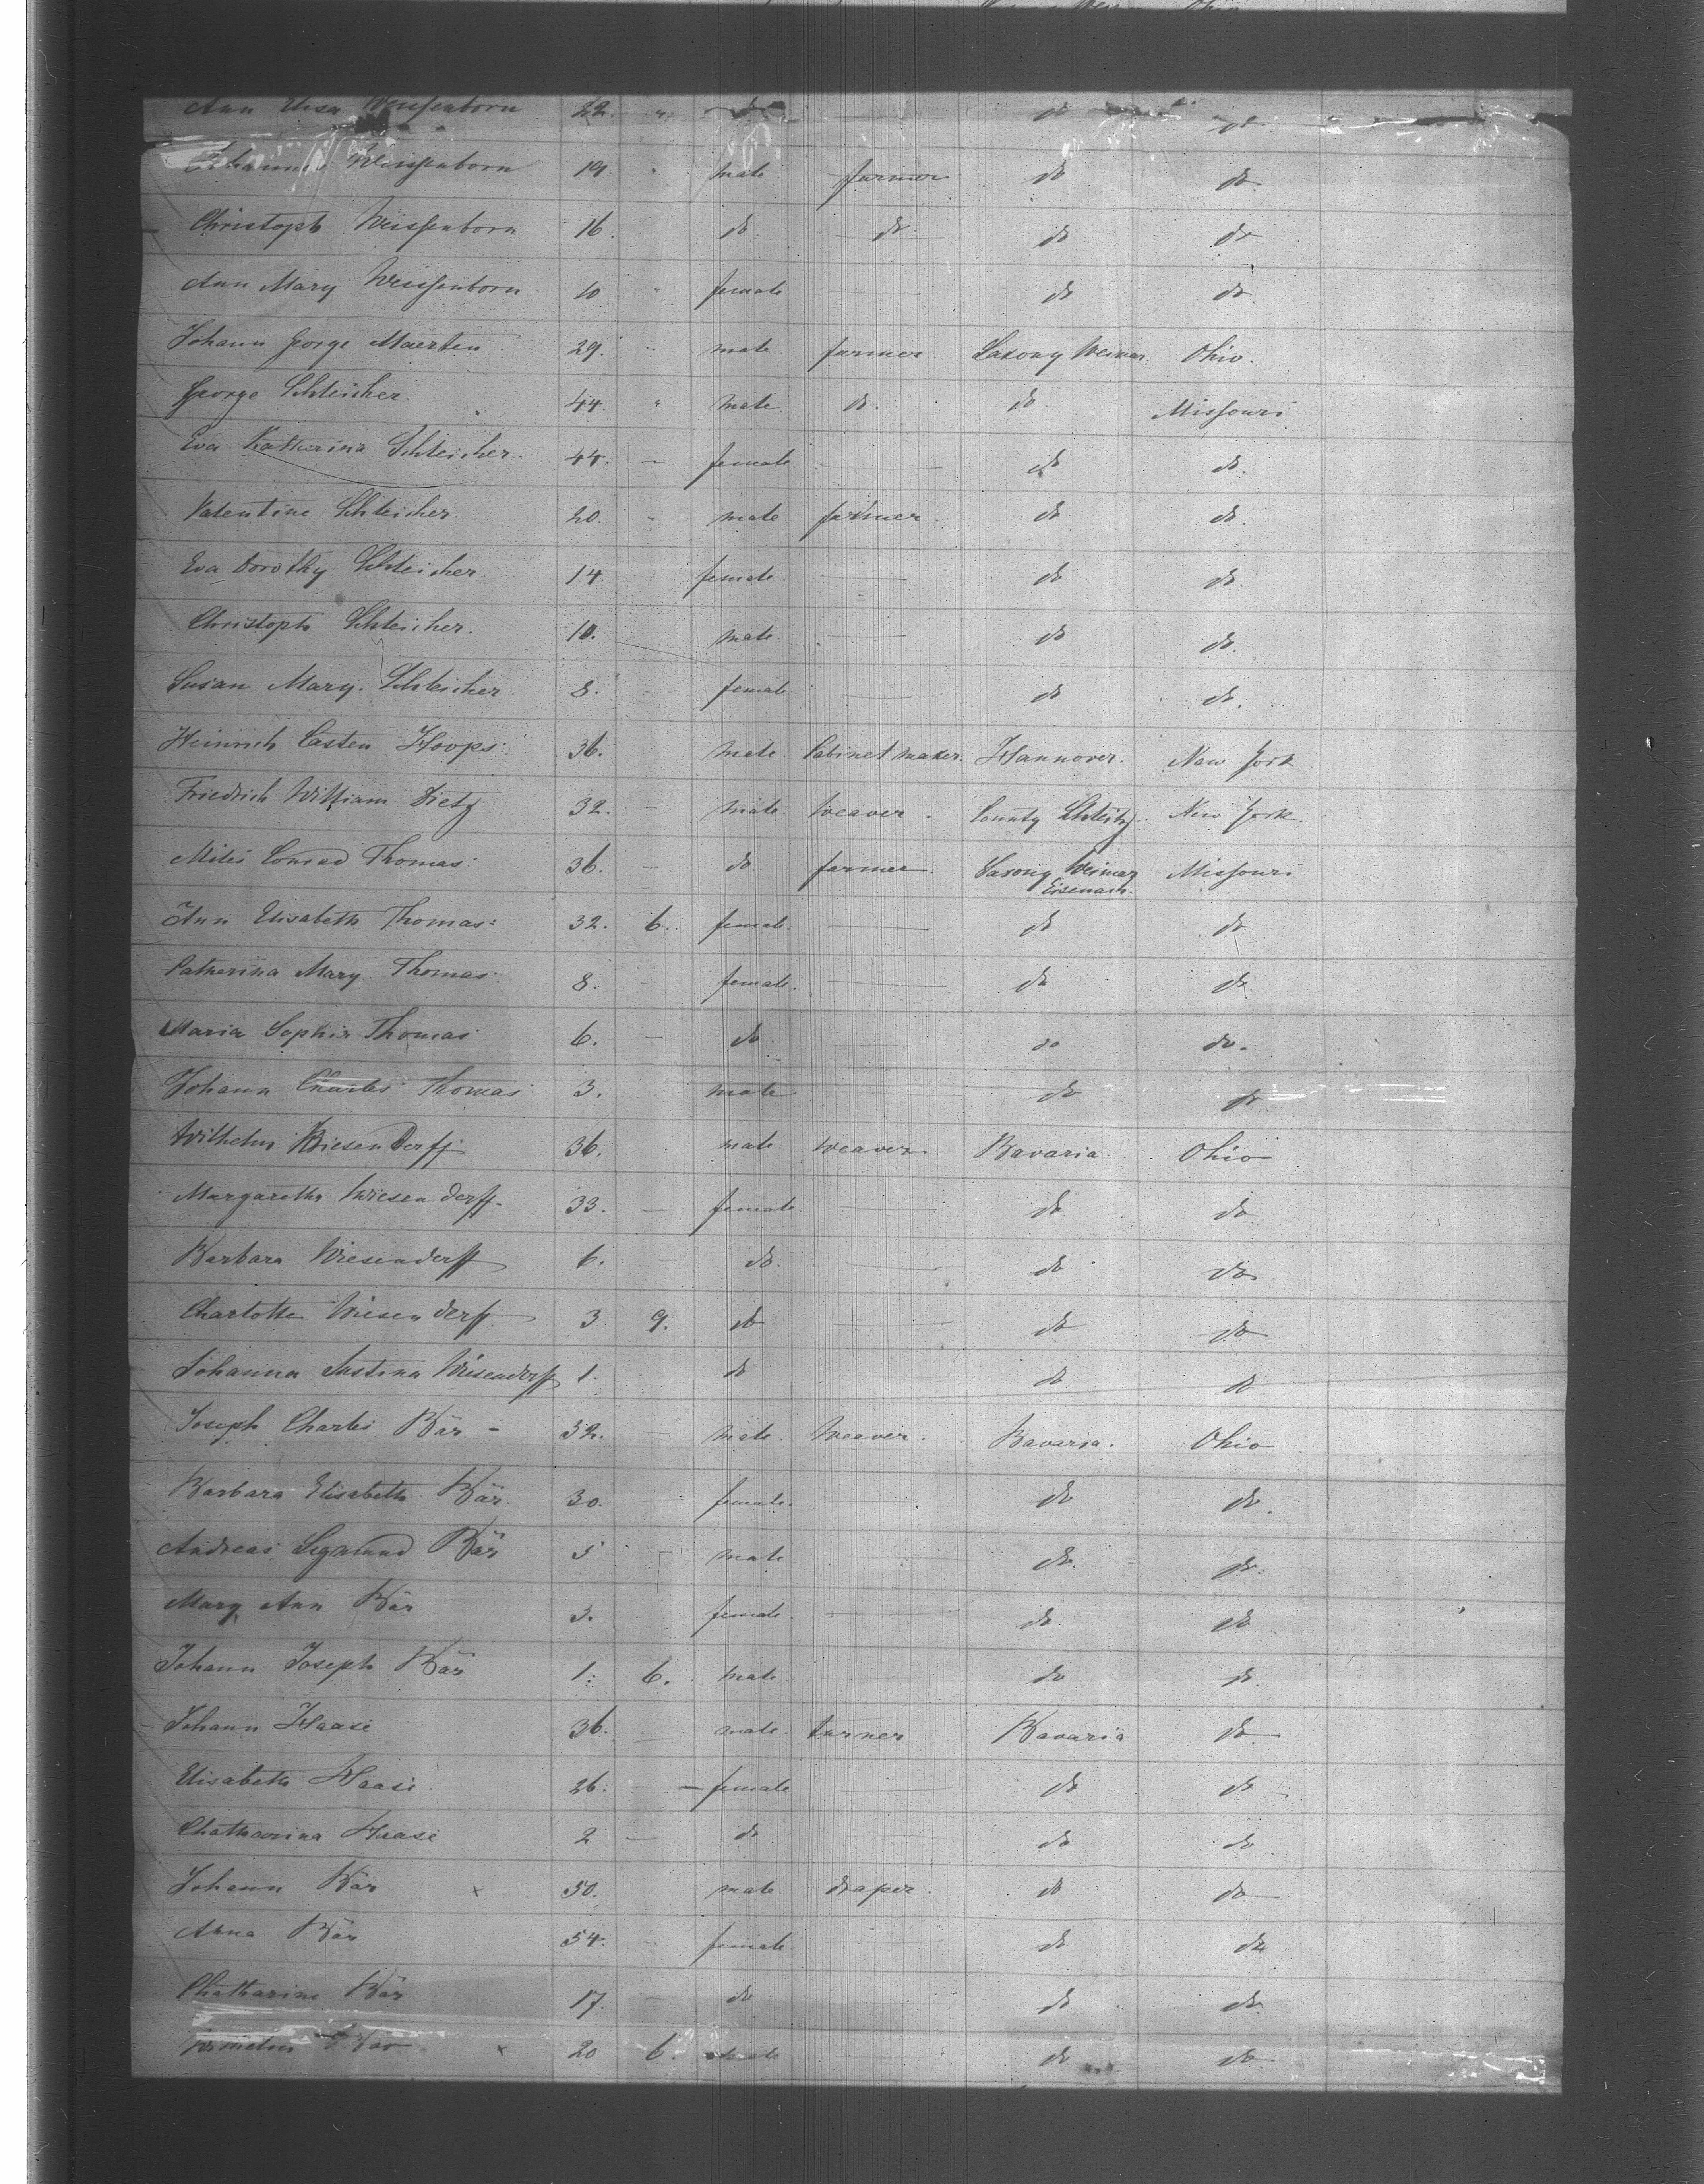 Ann Elisa Weissenborn 22. " do do do
Johannes Weissenborn 19. " male farmer do do.
Christoph Weissenborn 16. do do do do
Ann Mary Weissenborn 10 " female do do.
Johann George Maerten 29. " male farmer. Saxony Weimar. Ohio.
George Schleicher. 44. " male do. do Missouri
Eva Katharina Schleicher. 44. female do do.
Valentine Schleicher. 20. " male farmer. do do.
Eva Dorothy Schleicher. 14. female do do.
Christoph Schleicher. 10. male do do.
Susan Mary. Schleicher 8. female do do.
Heinrich Casten Hoops 36. male. Cabinet maker. Hannover. New York
Friedrich William Dietz 32. male. weaver. County Schleitz. New York.
Conrad Thomas 36. do farmer. Saxony Weimar Eisenach. Missouri
Ann Elisabeth Thomas 32. 6. female. do do.
Catherina Mary Thomas 8. female. do do.
Maria Sophia Thomas 6. do do do.
Johann Charles Thomas 3. male do do.
Wilhelm Wiesenderff 36. male weaver Bavaria. Ohio
Margaretha Wiesenderff. 33. female. do do
Barbara Wiesenderff 6. do. do do
Charlotte Wiesenderff 3 9. do do do
Johanna Justina Wiesenderff 1. do do do.
Joseph Charles Bär 32. male. Weaver. Bavaria. Ohio
Barbara Elisabeth Bär. 30. female. do do.
Andreas Sigmund Bär 5 male do. do.
Mary Ann Bär 3. female. do. do
Johann Joseph Bär 1. 6. male do do.
Johann Haase 36. male. turner Bavaria do.
Elisabeth Haase. 26. female do do
Chatharina Haase 2 do do do
Johann Bär x 50. male draper. do do
Anna Bär 54. female. do do
Chatharina Bär 17. do do do.
Bär x 20 6. male do do